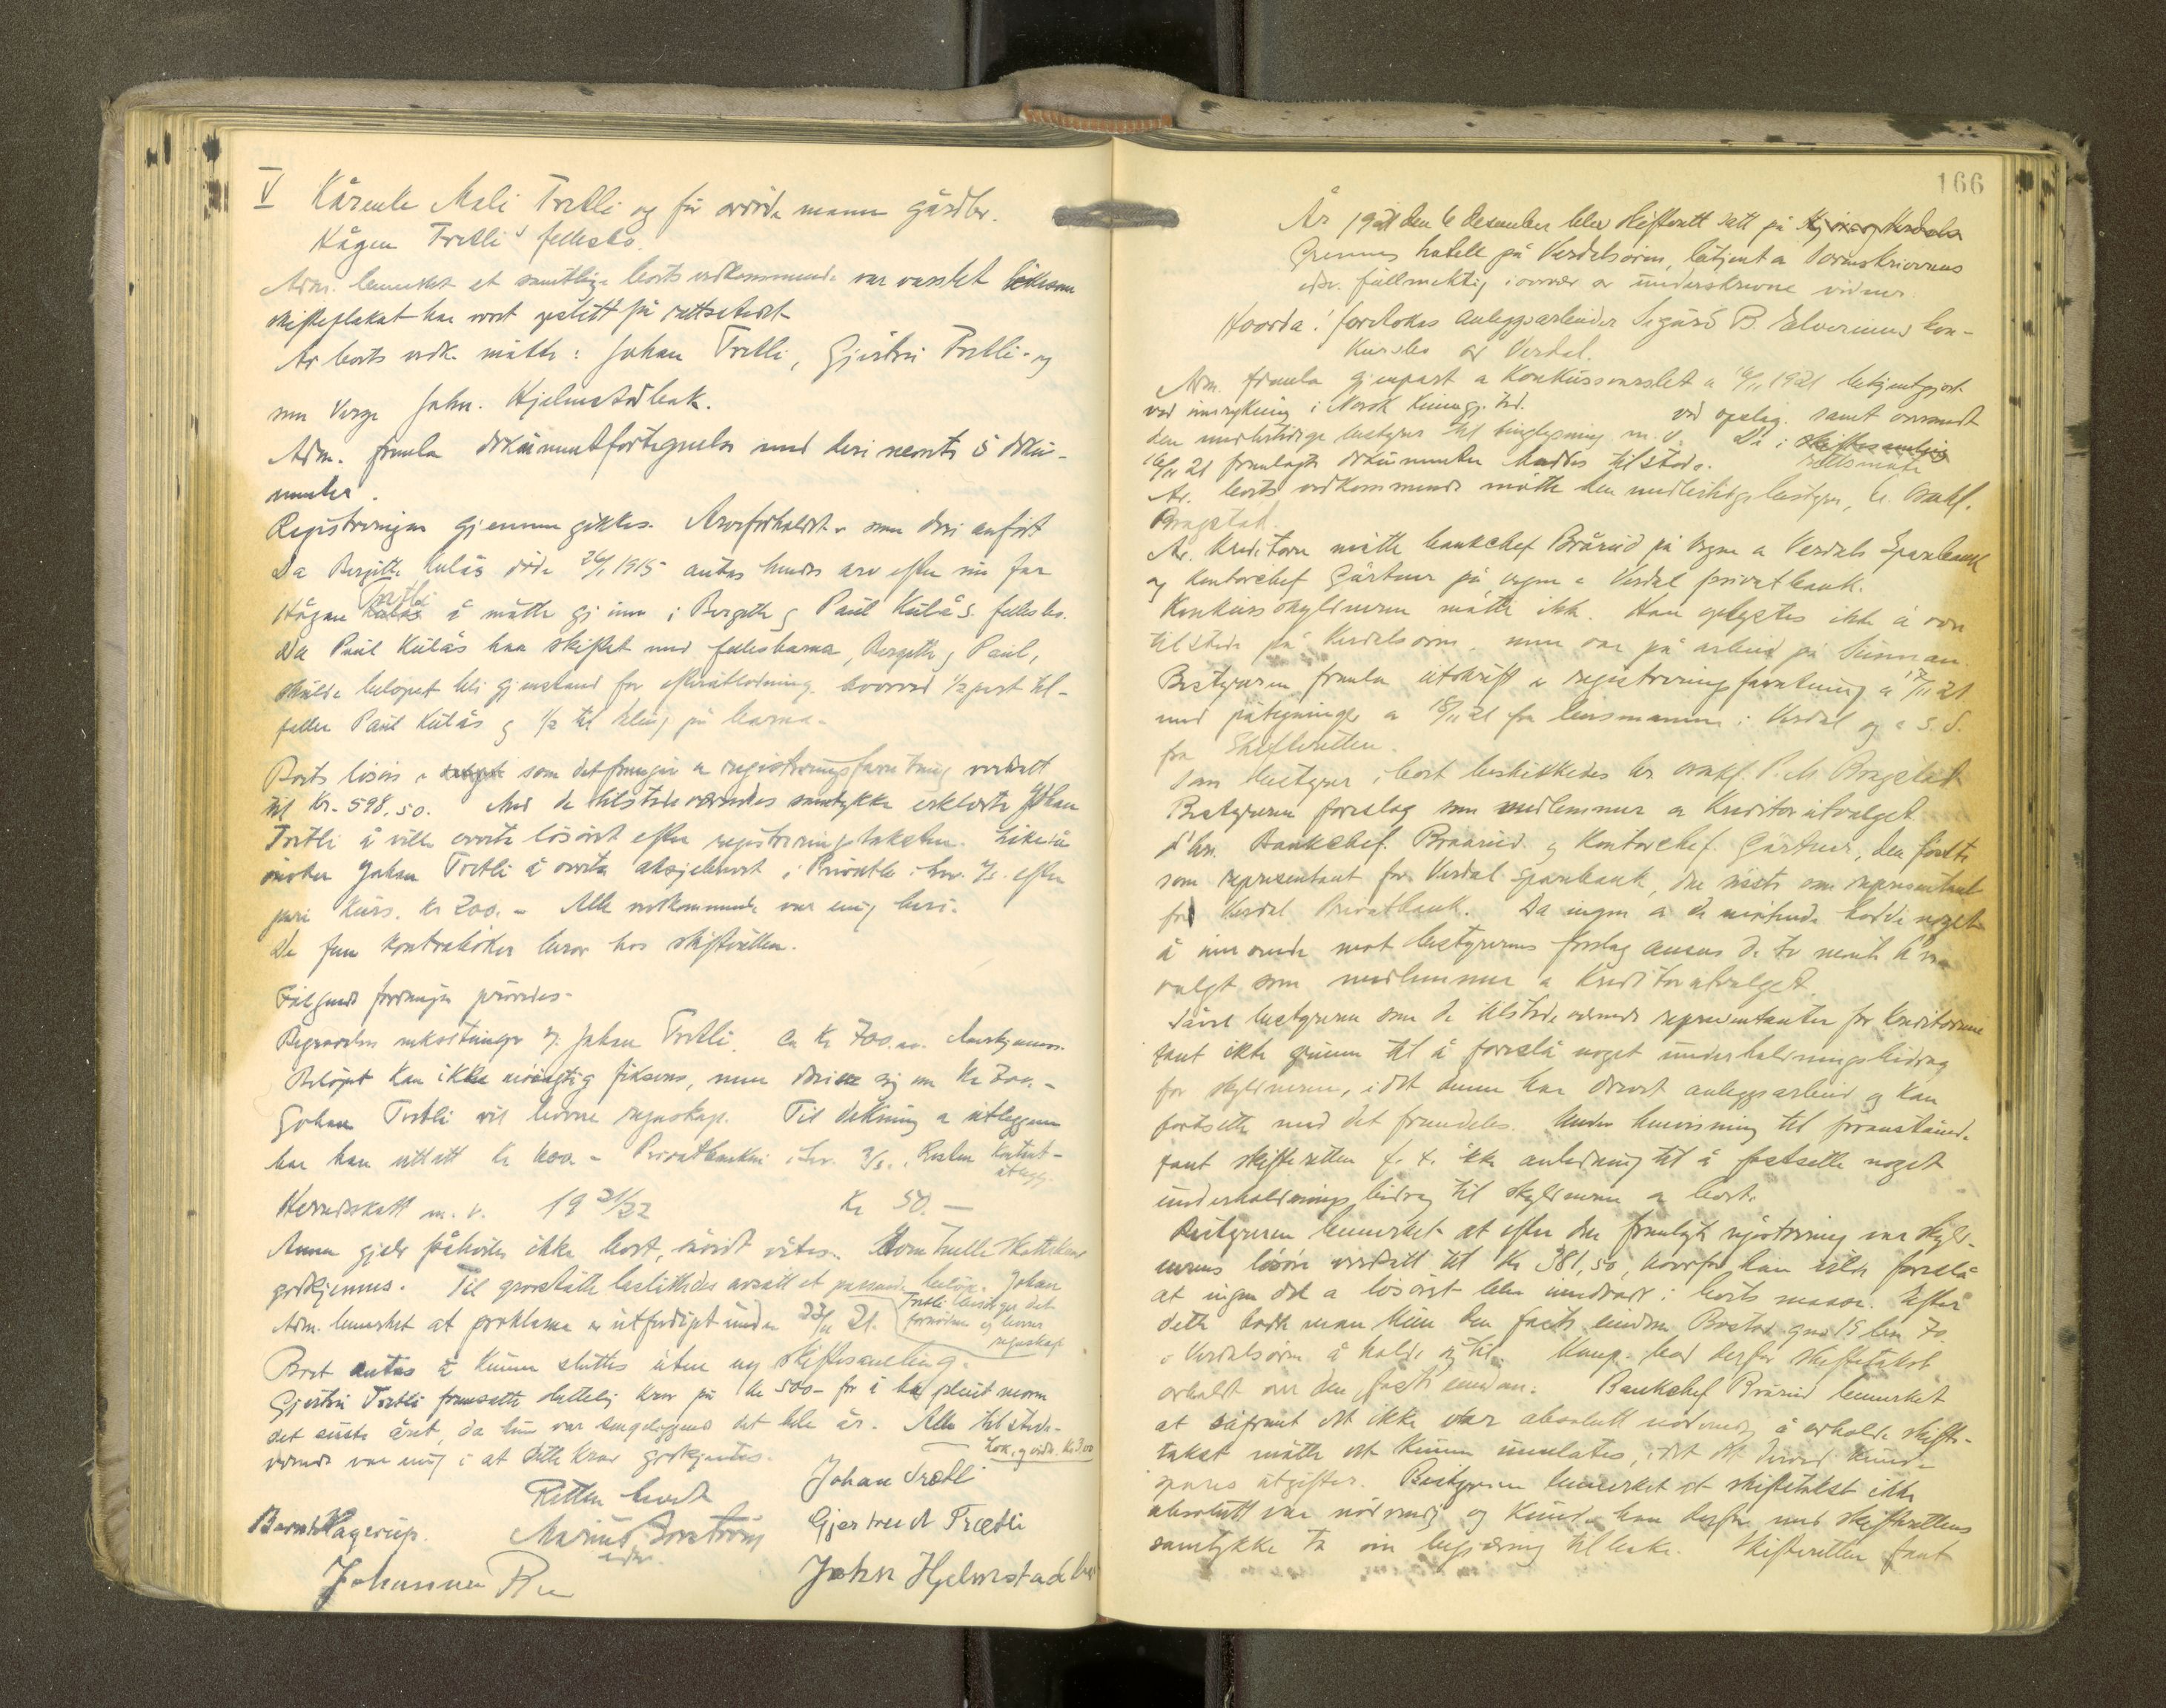 V Kårenle Mali Tretli og før avdøde mann gårdbr.
Hågen Tretli's fellesbo.
Adm. bemerket at samtlige boets vedkommende var varslet likesom
skifteplakat har vært opslått på rettstedet
Av boets vedk. møtte: Johan Tretli, Gjertru Tretli og
som verge John. Hjelmstadbak.
Adm. fremla dokumentfortegnelse med deri nevnte 5 doku-
menter.
Registreringen gjennemgikkes. Arveforholdet er som deri anført
Da Bergitte Kulås døde 26/1 1915 antas hendes arv efter sin far
Hågen Tretli å måtte gj inn i Bergitte og Paul Kulås fellesbo.
Da Paul Kulås har skiftet med fellesbarna, Bergitte og Paul,
skulde beløpet bli gjenstand for efterutlodning hvorved 1/2 part til-
faller Paul Kulås og 1/2 til deling på barna.
Boets løsøre er som det fremgår av registreringsforretning verdsatt
til Kr. 598,50. Med de tilstedeværendes samtykke erklærte Johan
Tretli å ville overta løsøret efter registreringstaksten. Likeså
ønsker Johan Tretli å overta aksjebrevet i Privatbk. i Lev. efter
pari kurs. Kr 200.- Alle vedkommende var enig heri.
De fem kontrabøker beror hos skifteretten.
Følgende fordringer prøvedes.
Begravelses omkostninger v. Johan Tretli. ca Kr 700.00. Anerkjennes.
Beløpet kan ikke nøiagtig fikseres, men dreier sig om Kr 700.-
Johan Tretli vil levere regnskap. Til dekning av utleggene
har han uttatt Kr 600.- Privatbanken i Lev. Resten Kontant-
utlegg.
Herredskatt m. v. 1921/22 Kr 50.-
Annen gjeld påhviler ikke boet, såvidt vites. Eventuelle skattekrav
godkjennes. Til gravstøtte besluttedes avsatt et passende beløp. Johan
Tretli besørger det
fornødne og leverer
regnskap
Adm. bemerket at proklama er utferdiget under 23/11 21.
Boet antas å kunne sluttes uten ny skiftesamling.
Gjertru Tretli fremsatte sluttelig krav på Kr 500- for å ha pleiet moren
det siste året, da hun var sengeliggende det hele år. Alle tilstede-
værende var enig i at dette krav godkjentes.
Lok. og vidn. Kr 3.00
Retten hevet
Johan Trætli
Bernt Hagerup.
Marius
Gjertrud Trætli
edsv.
Johannes
John Hjelmstadbak
166
År 1921 den 6 desember blev skifterett satt på
Grennes hotell på Verdalsøren, betjent av sorenskriverens
edsv. fullmektig i overvær av underskrevne vidner.
Hvorda: foretokes anleggsarbeider Sigurd B. Elverums kon-
kursbo av Verdal.
Adm. fremla gjenpart av Konkursvarslet av 16/11 1921 bekjentgjort
ved innrykning i Norsk Kunngj. tid. ved opslag samt oversendt
den midlertidige bestyrer til tinglysning m. v. De i skiftesamling
rettsmøte
16/11 21 fremlagte dokumenter haddes tilstede.
Av boets vedkommende møtte den midlertidige bestyrer, hr. overrf.
Bragstad.
Av kreditorer møtte bankchef Brårud på vegne av Verdals Sparebank
og Kontorchef Gärtner på vegne av Verdal privatbank.
Konkursskyldneren møtte ikke. Han oplystes ikke å være
tilstede på Verdalsøren, men var på arbeid på Sunnan.
Bestyreren fremla utskrift av registreringsforretning av 17/11 21
med påtegninger av 18/11 21 fra lensmannen i Verdal og av s. d.
fra Skifteretten.
Som bestyrer i boet beskikkedes hr overrf. P. M. Bragstad
Bestyreren foreslog som medlemmer av Kreditorutvalget
d'hrr. Bankchef Braarud og Kontorchef Gärtner, den første
som representant for Verdal Sparebank, den siste som representant
for Verdal Privatbank. Da ingen av de møtende hadde noget
å innvende mot bestyrerens forslag ansees de to nevnte å være
valgt som medlemmer av Kreditorutvalget.
Såvel bestyreren som de tilstedeværende representanter for kreditorene
fant ikke grunn til å foreslå noget underholdningsbidrag
for skyldneren, idet denne har drevet anleggsarbeid og kan
fortsette med det fremdeles. Under henvisning til foranstående
fant skifteretten f. t. ikke anledning til å fastsette noget
underholdningsbidrag til skyldneren av boet.
Bestyreren bemerket at efter den fremlagte registrering var skyld-
nerens løsøre verdsatt til Kr 381,50, hvorfor han vilde foreslå
at ingen del av løsøret blev inndradt i boets masse. Efter
dette hadde man kun den faste eiendom Bostad gnr 19 bnr 70
i Verdalsøren å holde sig til. Komp. bad derfor skiftetakst
avholdt over den faste eiendom. Bankchef Brårud bemerket
at såfremt det ikke var absolutt nødvendig å avholde skifte-
takst måtte det kunne unnlates, idet det derved kunde
spares utgifter. Bestyreren bemerket at skiftetakst ikke
absolutt var nødvendig og kunde han derfor med skifterettens
samtykke ta sin begjæring tilbake. Skifteretten fant